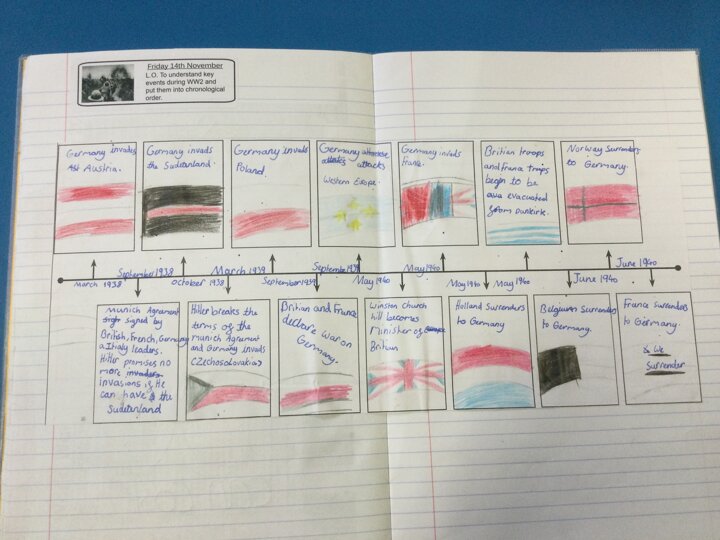 Friday 14th November
L.O. To understand key
events during WW2 and
put them into chronological
order.
Germany invades
Austria.
Germany invads
the Sudetanland.
Germany invads
Poland.
Germany
attacks
Western Europe.
Germany invads
France.
Britian troops
and France troops
begin to be
evacuated
from Dunkirk.
Norway Surrenders
to Germany.
March 1938
September 1938
October 1938
March 1939
September 1939
September 1939
May 1940
May 1940
May 1940
May 1940
June 1940
June 1940
Munich Agreement
signed by
British, French, Germany
a Italy leaders.
Hitler promises no
more
invasions if He
can have the
Sudetenland
Hitler breaks the
terms of the
Munich Agreement
and Germany invads
Czechoslovakia
Britian and France
declare war on
Germany.
Winston church
hill becomes
Minister of
Britian
Holland Surrenders
to Germany
Belgium Surrenders
to Germany.
France Surrenders
to Germany.
We
Surrender